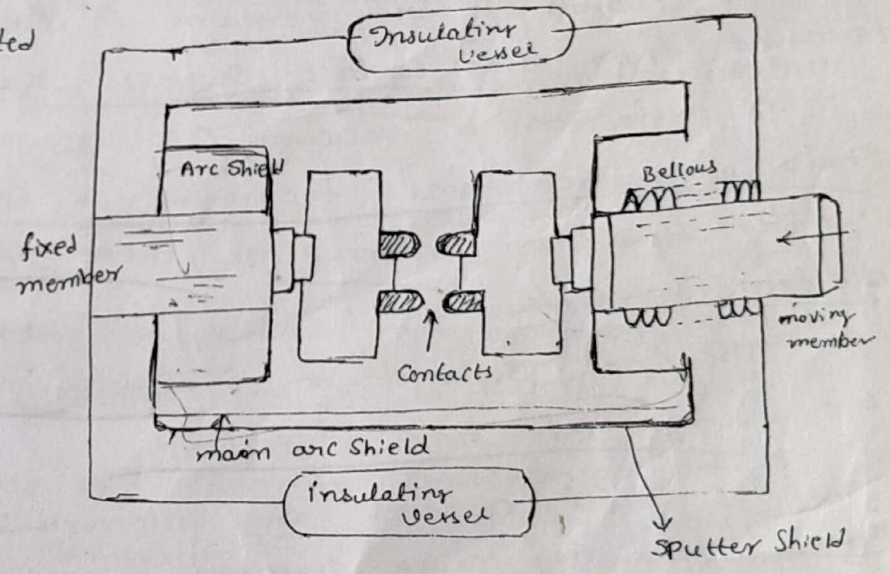 ted
Insulating
Vessel
Arc Shield
Bellows
fixed
member
moving
member
Contacts
main arc Shield
insulating
Vessel
Sputter Shield